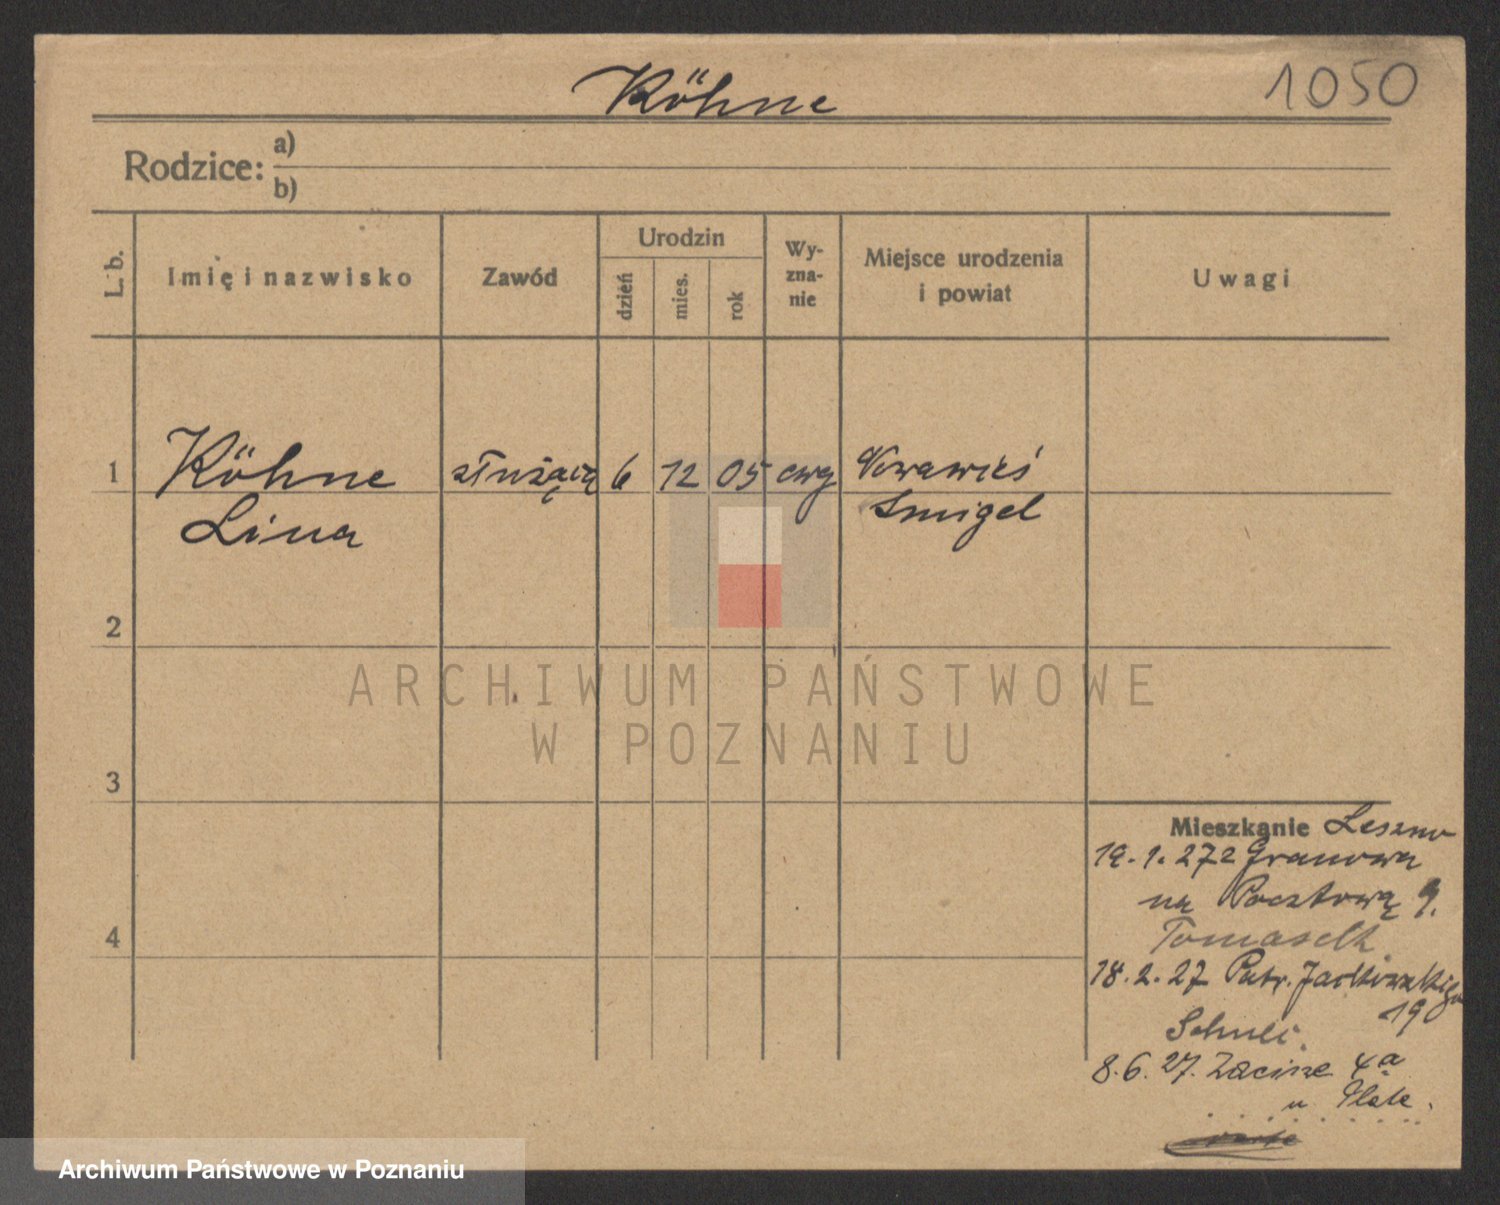 Köhne
1050
Rodzice: a)
b)
L. b.
Imię i nazwisko
Zawód
Urodzin
dzień
mies.
rok
Wy-
zna-
nie
Miejsce urodzenia
i powiat
Uwagi
1
Köhne
Lina
służąca
6
12
05
ewg
Nowawieś
Śmigel
2
3
4
ARCHIWUM PAŃSTWOWE
W POZNANIU
Mieszkanie Leszno
19.1.27 z Granowa
na Pocztową 9.
18.2.27 Patr. Jackowskiego
19
8.6.27. Zacisze 4a
u
Archiwum Państwowe w Poznaniu